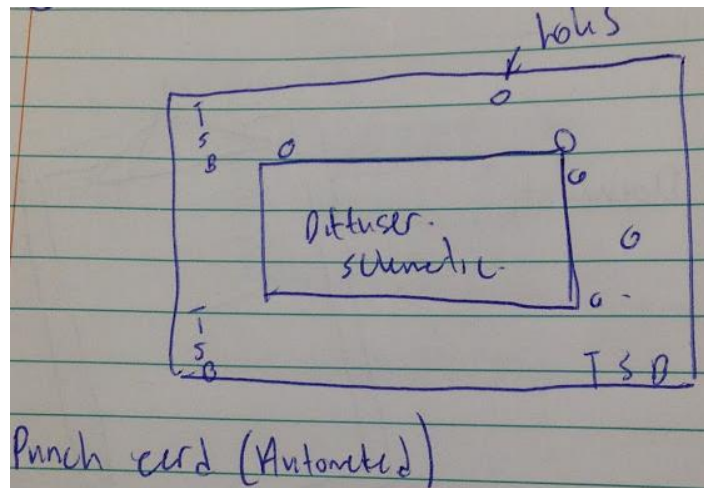 holes
T
S
B
Diffuser.
schematic.
T
S
B
T S B
Punch card (Automated)